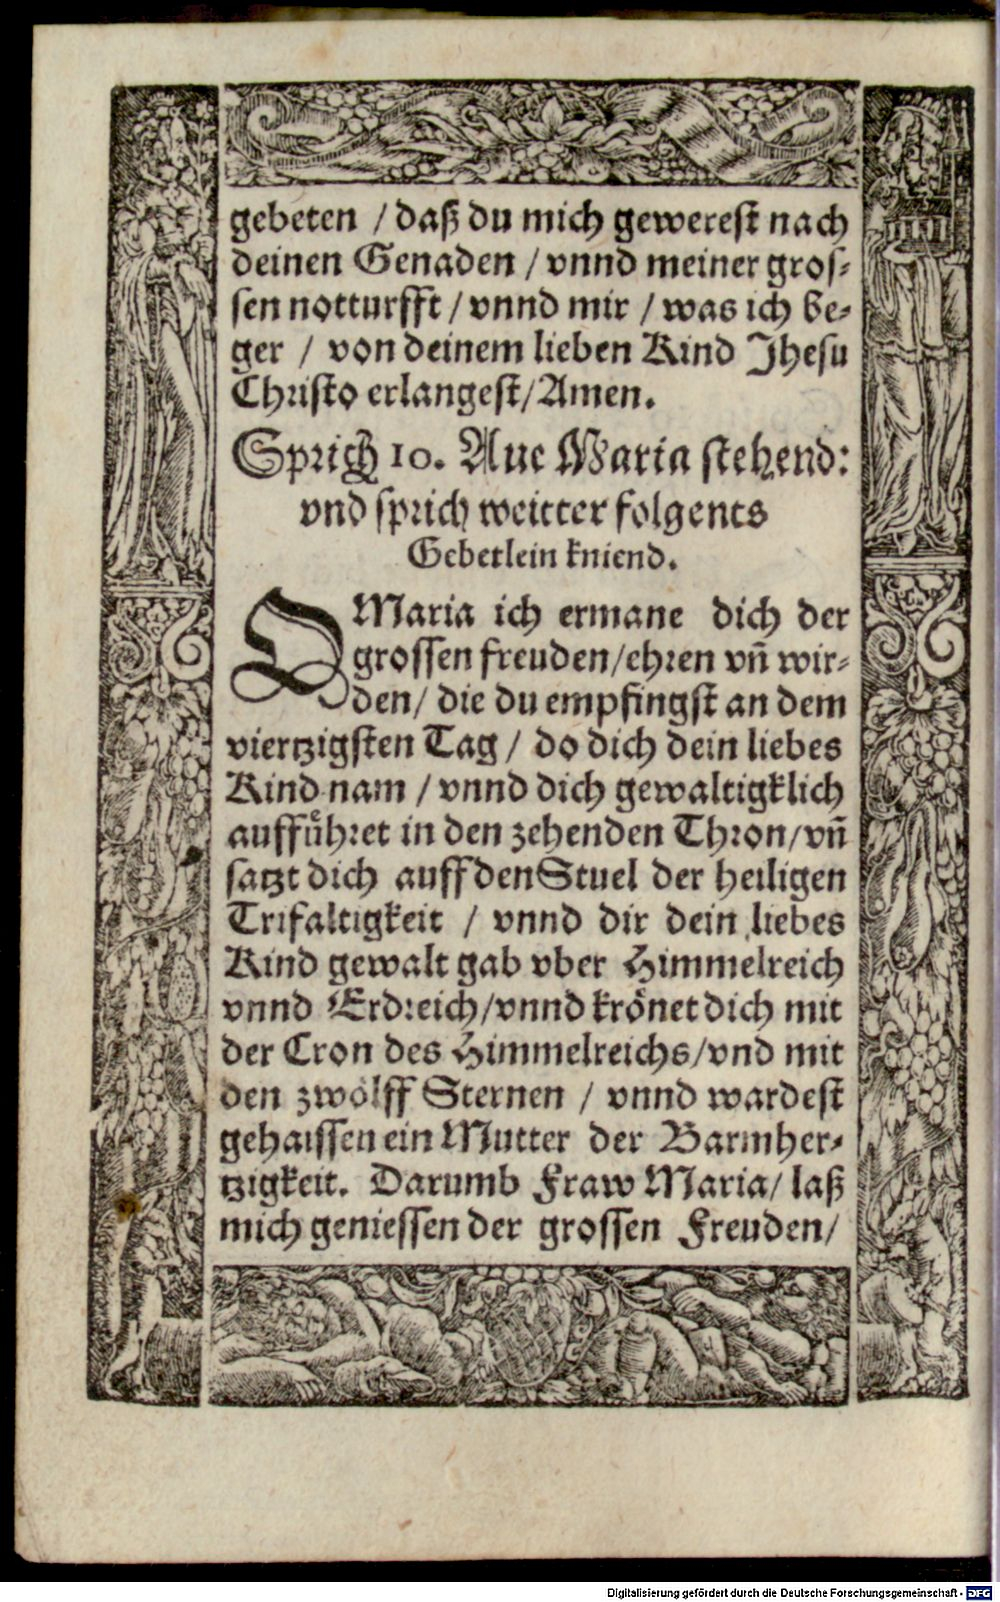 gebeten / daß du mich gewerest nach
deinen Genaden / vnnd meiner gros-
sen notturfft / vnnd mir / was ich be-
ger / von deinem lieben Kind Jhesu
Christo erlangest/ Amen.
Sprich 10. Aue Maria stehend:
vnd sprich weitter folgents
Gebetlein kniend.
O Maria ich ermane dich der
grossen freuden/ehren vn̄ wir-
den/ die du empfingst an dem
viertzigsten Tag / do dich dein liebes
Kind nam / vnnd dich gewaltigklich
auffuͤhret in den zehenden Thron/vn̄
satzt dich auff den Stuel der heiligen
Trifaltigkeit / vnnd dir dein liebes
Kind gewalt gab vber Himmelreich
vnnd Erdreich/vnnd kroͤnet dich mit
der Cron des Himmelreichs/vnd mit
den zwoͤlff Sternen / vnnd wardest
gehaissen ein Mutter der Barmher-
tzigkeit. Darumb Fraw Maria/ laß
mich geniessen der grossen Freuden/
Digitalisierung gefördert durch die Deutsche Forschungsgemeinschaft - DFG